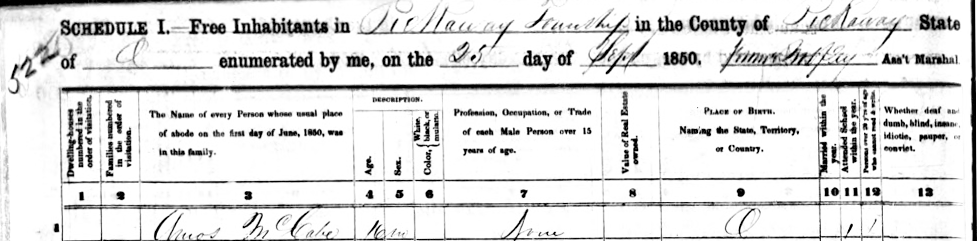 522
SCHEDULE I.—Free Inhabitants in Pickaway Township in the County of Pickaway State
of O enumerated by me, on the 25 day of Sept 1850. Ass't Marshal
Dwelling-houses numbered in the order of visitation.
Families numbered in the order of visitation.
The Name of every Person whose usual place of abode on the first day of June, 1850, was in this family.
DESCRIPTION.
Age.
Sex.
Color, { White, black, or mulatto.
Profession, Occupation, or Trade of each Male Person over 15 years of age.
Value of Real Estate owned.
PLACE OF BIRTH. Naming the State, Territory, or Country.
Married within the year.
Attended School within the year.
Persons over 20 y'rs of age who cannot read & write.
Whether deaf and dumb, blind, insane, idiotic, pauper, or convict.
1 2 3 4 5 6 7 8 9 10 11 12 13
1 Amos McCabe 16 m None O 1 1